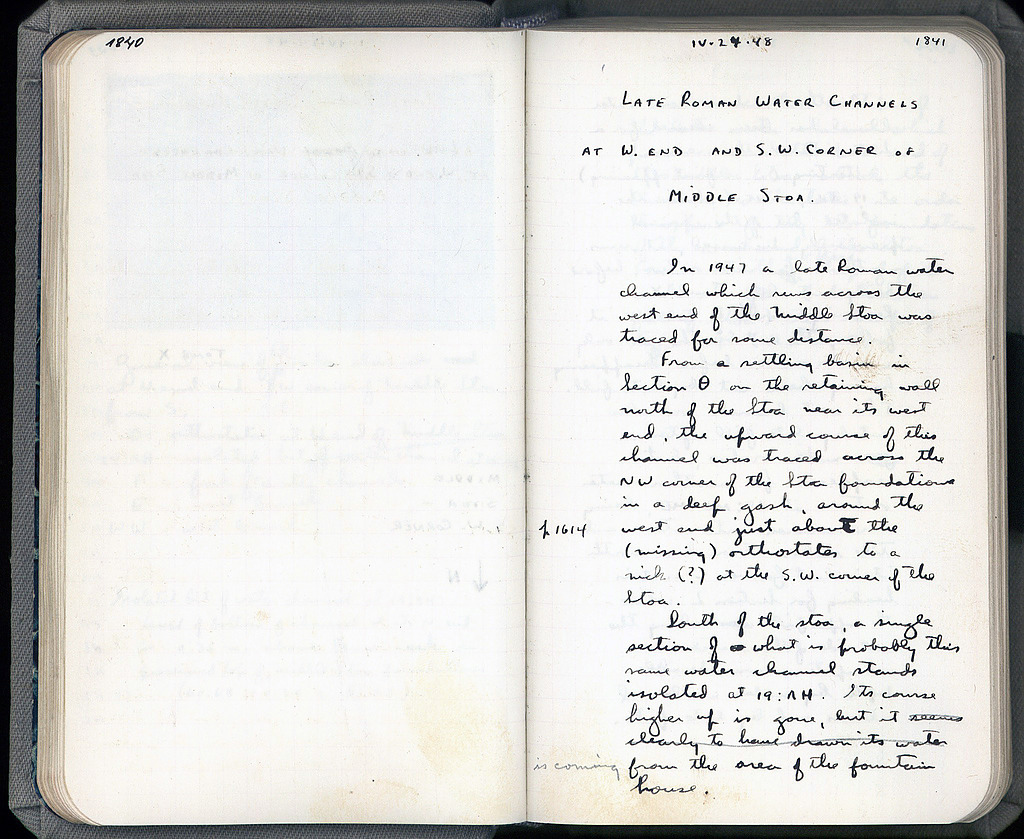 1840
IV·24·48
1841
LATE ROMAN WATER CHANNELS
AT W. END AND S.W. CORNER OF
MIDDLE STOA.
In 1947 a late Roman water
channel which runs across the
west end of the Middle Stoa was
traced for some distance.
From a settling basin in
Section Θ on the retaining wall
north of the Stoa near its west
end, the upward course of this
channel was traced across the
NW corner of the Stoa foundations
in a deep gash, around the
p 1614 west end just about the
(missing) orthostates to a
(?) at the S.W. corner of the
Stoa.
South of the stoa, a single
section of what is probably this
same water channel stands
isolated at 19:ΛΗ. Its course
higher up is gone, but it seems
clearly to have drawn its water
is coming from the area of the fountain
house.